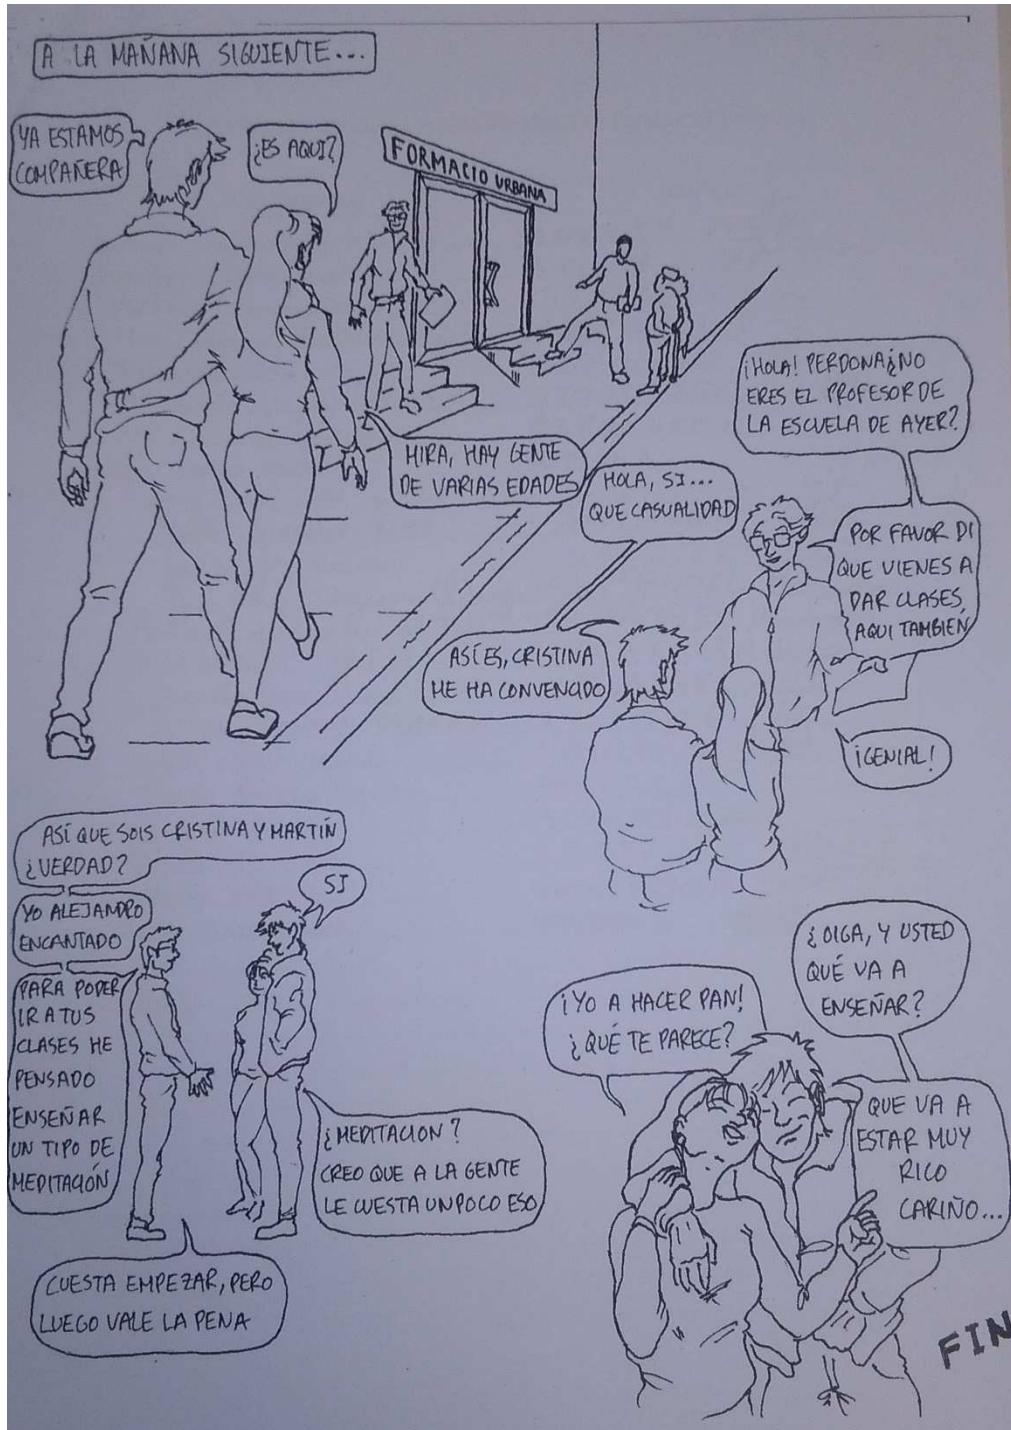 A LA MAÑANA SIGUIENTE...
YA ESTAMOS
COMPAÑERA
¿ES AQUI?
FORMACIO URBANA
MIRA, HAY GENTE
DE VARIAS EDADES
¡HOLA! PERDONA¿NO
ERES EL PROFESOR DE
LA ESCUELA DE AYER?
HOLA, SI...
QUE CASUALIDAD
POR FAVOR DI
QUE VIENES A
DAR CLASES
AQUI TAMBIEN
ASÍ ES, CRISTINA
ME HA CONVENCIDO
¡GENIAL!
ASÍ QUE SOIS CRISTINA Y MARTÍN
¿VERDAD?
SI
YO ALEJANDRO
ENCANTADO
PARA PODER
IR A TUS
CLASES HE
PENSADO
ENSEÑAR
UN TIPO DE
MEDITACIÓN
¿MEDITACION?
CREO QUE A LA GENTE
LE CUESTA UN POCO ESO
CUESTA EMPEZAR, PERO
LUEGO VALE LA PENA
¿OIGA, Y USTED
QUÉ VA A
ENSEÑAR?
¡YO A HACER PAN!
¿QUÉ TE PARECE?
QUE VA A
ESTAR MUY
RICO
CARIÑO...
FIN